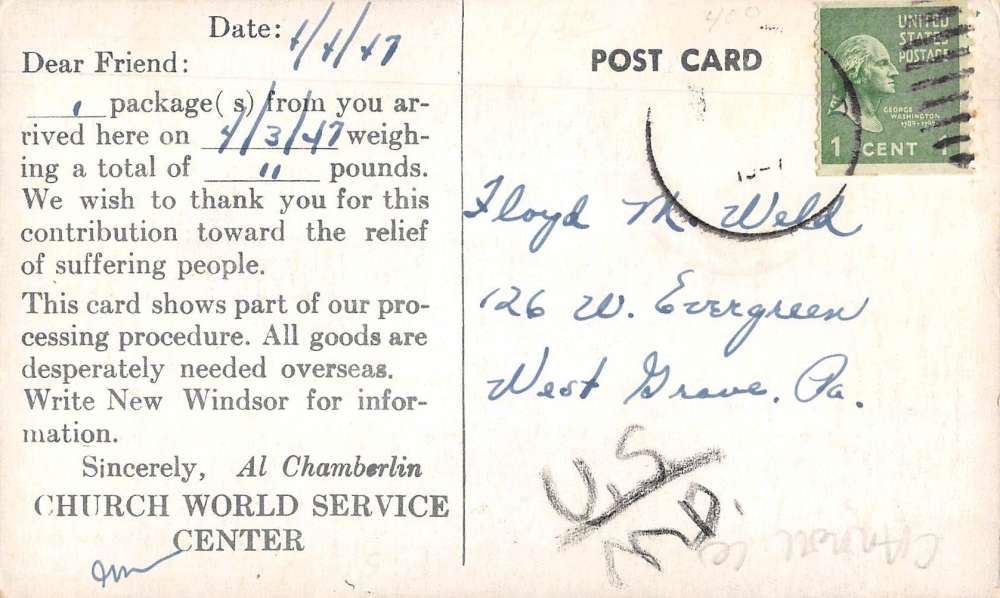 Date: 4/4/47
Dear Friend:
1 package(s) from you ar-
rived here on 4/3/47 weigh-
ing a total of 11 pounds.
We wish to thank you for this
contribution toward the relief
of suffering people.
This card shows part of our pro-
cessing procedure. All goods are
desperately needed overseas.
Write New Windsor for infor-
mation.
Sincerely, Al Chamberlin
CHURCH WORLD SERVICE
CENTER
POST CARD
UNITED
STATES
POSTAGE
GEORGE
WASHINGTON
1 CENT 1
Floyd M. Weld
126 W. Evergreen
West Grove, Pa.
US
MD.